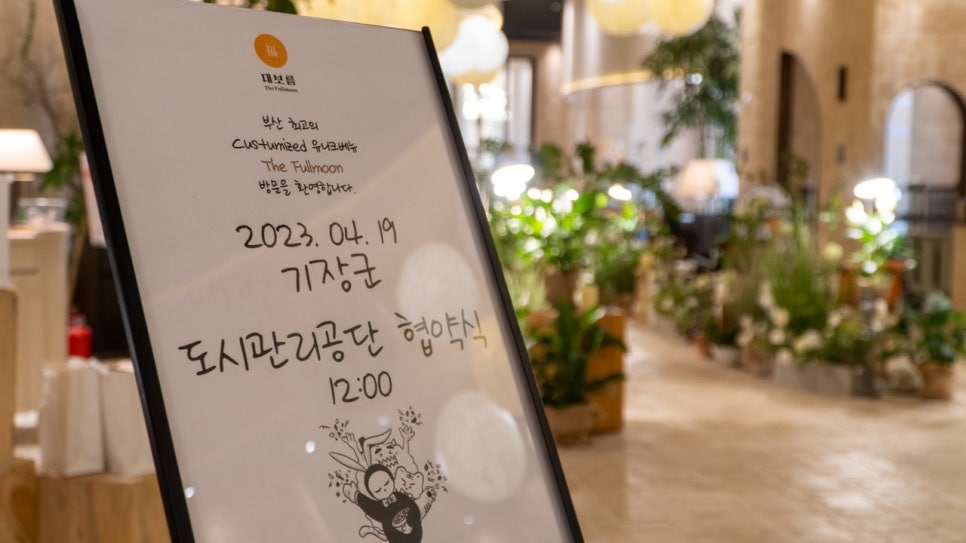 福
대보름
The Fullmoon
부산 최고의
Customized 유니크베뉴
The Fullmoon
방문을 환영합니다.
2023. 04. 19
기장군
도시관리공단 협약식
12:00